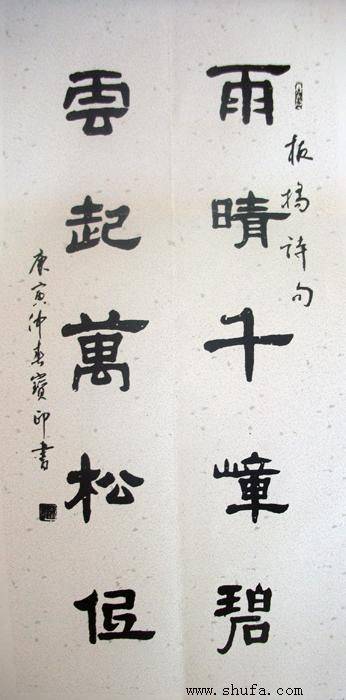 板橋詩句
雨晴千嶂碧
雲起萬松低
庚寅仲春寶印書
www.shufa.com